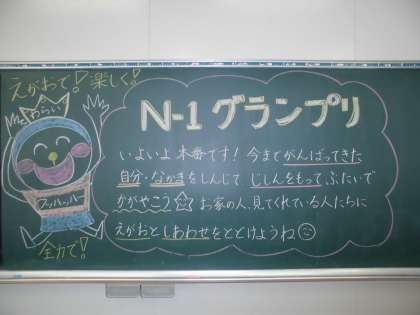 えがおで!楽しく!
わらい
N-1グランプリ
いよいよ本番です!今までがんばってきた
自分・なかまをしんじて じしんをもって ぶたいで
かがやこう☆お家の人、見てくれている人たちに
えがおとしあわせをとどけようね☺
全力で!